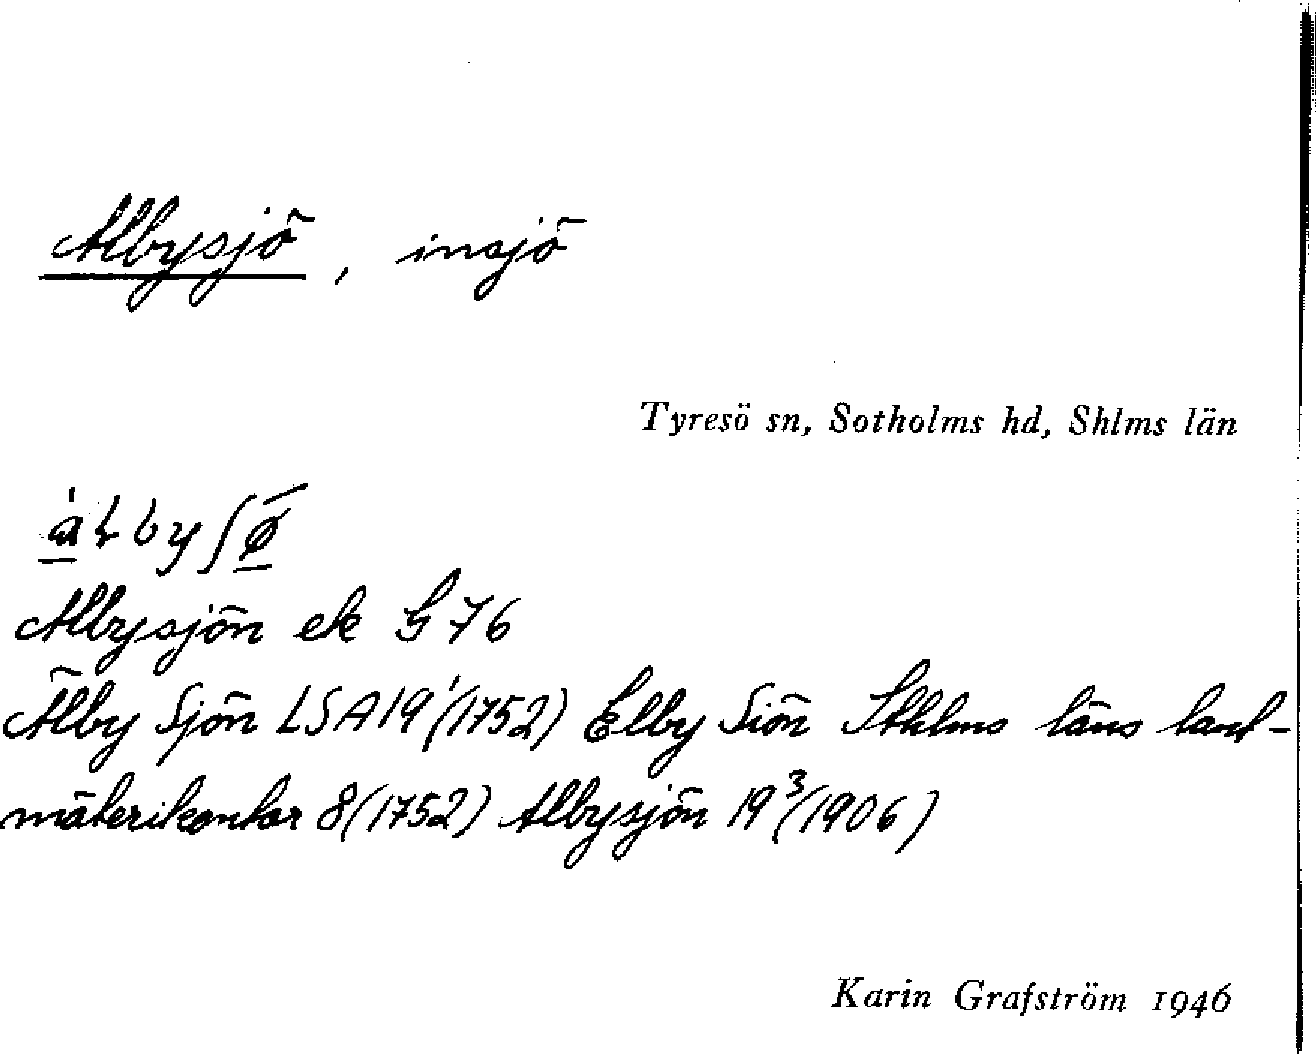 Albysjö, insjö
Tyresö sn, Sotholms hd, Shlms län
Albysjön ek G 76
Älby Sjön LSA 19¹(1752) Elby Siön Sthlms läns lant-
mäterikontor 8(1752) Albysjön 19³(1906)
Karin Grafström 1946